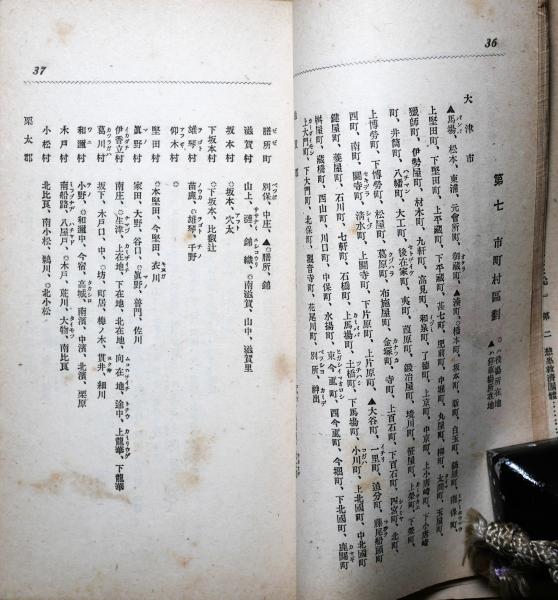 36
第七 市町村區劃
◎ハ役場所在地
▲ハ停車場所在地
大津市
▲馬場、松本、東浦、元會所町、御藏町、▲湊町、◎橋本町、坂本町、新町、白玉町、鍋屋町、南保町、
上堅田町、下堅田町、上平藏町、下平藏町、甚七町、肥前町、中堀町、丸屋町、柳町、太間町、玉屋町、
獵師町、伊勢屋町、材木町、九軒町、高見町、和泉町、了德町、上京町、中京町、上小唐崎町、下小唐崎
町、井筒町、八幡町、大工町、後在家町、夷町、葭原町、鍛冶屋町、境川町、笹屋町、上榮町、下榮町、
上博勞町、下博勞町、松屋町、葛原町、布施屋町、金塚町、寺町、上百石町、下百石町、四宮町、北町、
四町、南町、關寺町、淸水町、上關寺町、下片原町、上片原町、▲大谷町、一里町、追分町、蘆尾船頭町
鍵屋町、菱屋町、石川町、七軒町、石橋町、上馬場町、下馬場町、土橋町、小川町、上北國町、中北國町
桝屋町、藏橋町、西山町、川口町、中保町、水揚町、東今颪町、西今颪町、今堀町、下北國町、鹿關町
上大門町、下大門町、北保町、觀音寺町、花尾川町、別所、神出
37
膳所町 別保、中庄、▲◎膳所、錦
滋賀村 山上、漣、錦織、◎南滋賀、山中、滋賀里
坂本村 ◎坂本、穴太
下坂本村 ◎下坂本、比叡辻
雄琴村 苗鹿、◎雄琴、千野
仰木村 ◎仰木
堅田村 ◎本堅田、今堅田、衣川
眞野村 家田、大野、谷口、◎眞野、普門、佐川
伊香立村 南庄、◎生津、上在地、下在地、北在地、向在地、途中、上龍華、下龍華
葛川村 坂下、木戸口、中、◎坊、町居、梅ノ木、貫井、細川
和邇村 小野、◎和邇中、今宿、高城、南濱、中濱、北濱、栗原
木戸村 南船路、八屋戸、◎木戸、荒川、大物、南比良
小松村 北比良、南小松、鵜川、◎北小松
栗太郡